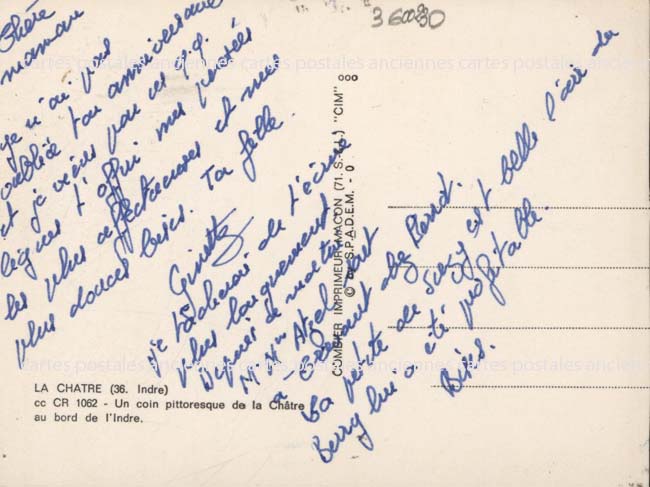 Chère
maman
je n'ai pas
oublié ton anniversaire
et je viens par ces
lignes t'offrir mes pensées
les plus affectueuses et mes
plus doux bisous. Ta fille.
Ginette
je tacherai de t'écrire
plus longuement
M. Mme
sont
chez
La petite de Suzy est belle l'air du
Berry lui a été profitable.
Bises.
36000 30
COMBIER IMPRIMEUR MACON (71. S.-&-L.) "CIM"
© by S.P.A.D.E.M. - 0
LA CHATRE (36. Indre)
cc CR 1062 - Un coin pittoresque de la Châtre
au bord de l'Indre.
cartes postales anciennes cartes postales anciennes cartes postales anciennes
cartes postales anciennes cartes postales anciennes cartes postales anciennes